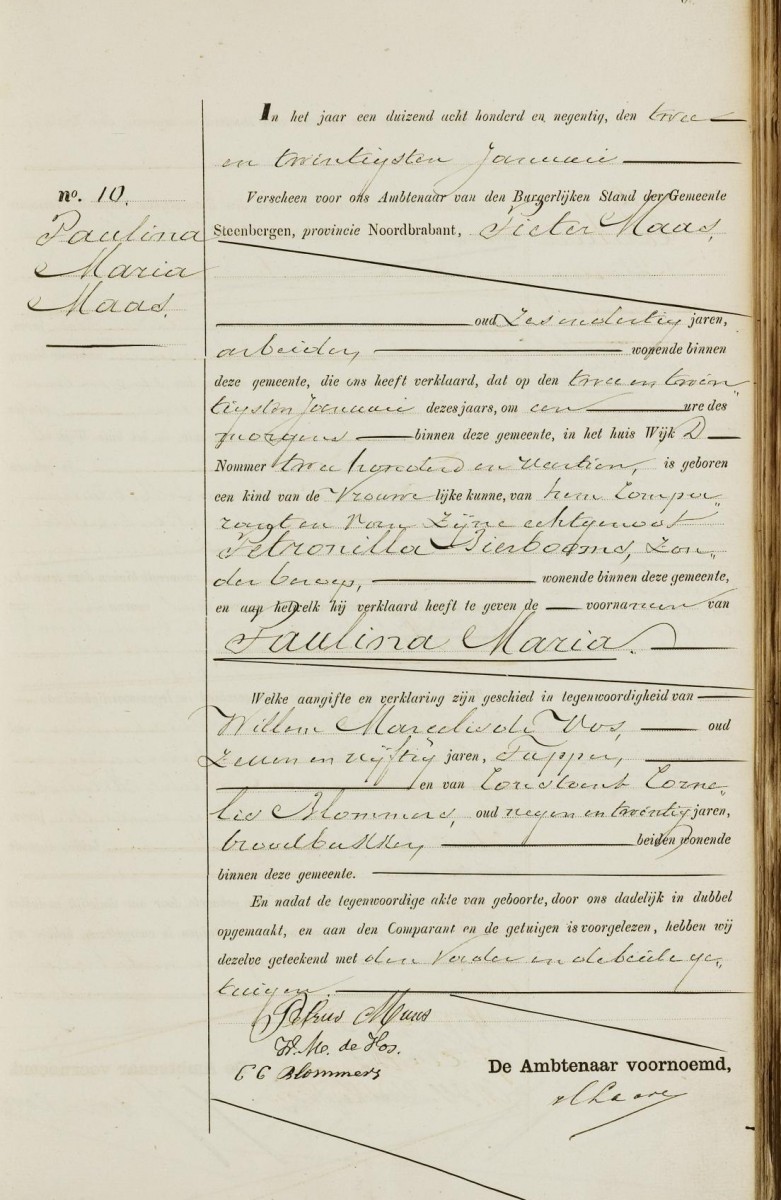 In het jaar een duizend acht honderd en negentig, den twee
en twintigsten Januarie
no. 10.
Paulina
Maria
Maas.
Verscheen voor ons Ambtenaar van den Burgerlijken Stand der Gemeente
Steenbergen, provincie Noordbrabant, Pieter Maas,
oud Zes en dertig jaren,
arbeider, wonende binnen
deze gemeente, die ons heeft verklaard, dat op den twee en twin„
tigsten Januarie dezes jaars, om een ure des
morgens binnen deze gemeente, in het huis Wijk D
Nommer twee honderd en veertien, is geboren
een kind van de Vrouwelijke kunne, van hem Compa„
rant en van Zijne echtgenoot
Petronilla Bierbooms, Zon„
der beroep, wonende binnen deze gemeente,
en aan hetwelk hij verklaard heeft te geven de voornamen van
Paulina Maria.
Welke aangifte en verklaring zijn geschied in tegenwoordigheid van
Willem Marcelis de Vos, oud
Zeven en vijftig jaren, Tapper,
en van Constant Corne„
lis Blommers, oud negen en twintig jaren,
broodbakker, beiden wonende
binnen deze gemeente.
En nadat de tegenwoordige akte van geboorte, door ons dadelijk in dubbel
opgemaakt, en aan den Comparant en de getuigen is voorgelezen, hebben wij
dezelve geteekend met den Vader en de beide ge„
tuigen.
Petrus Maas
W. M. de Vos.
C C Blommers
De Ambtenaar voornoemd,